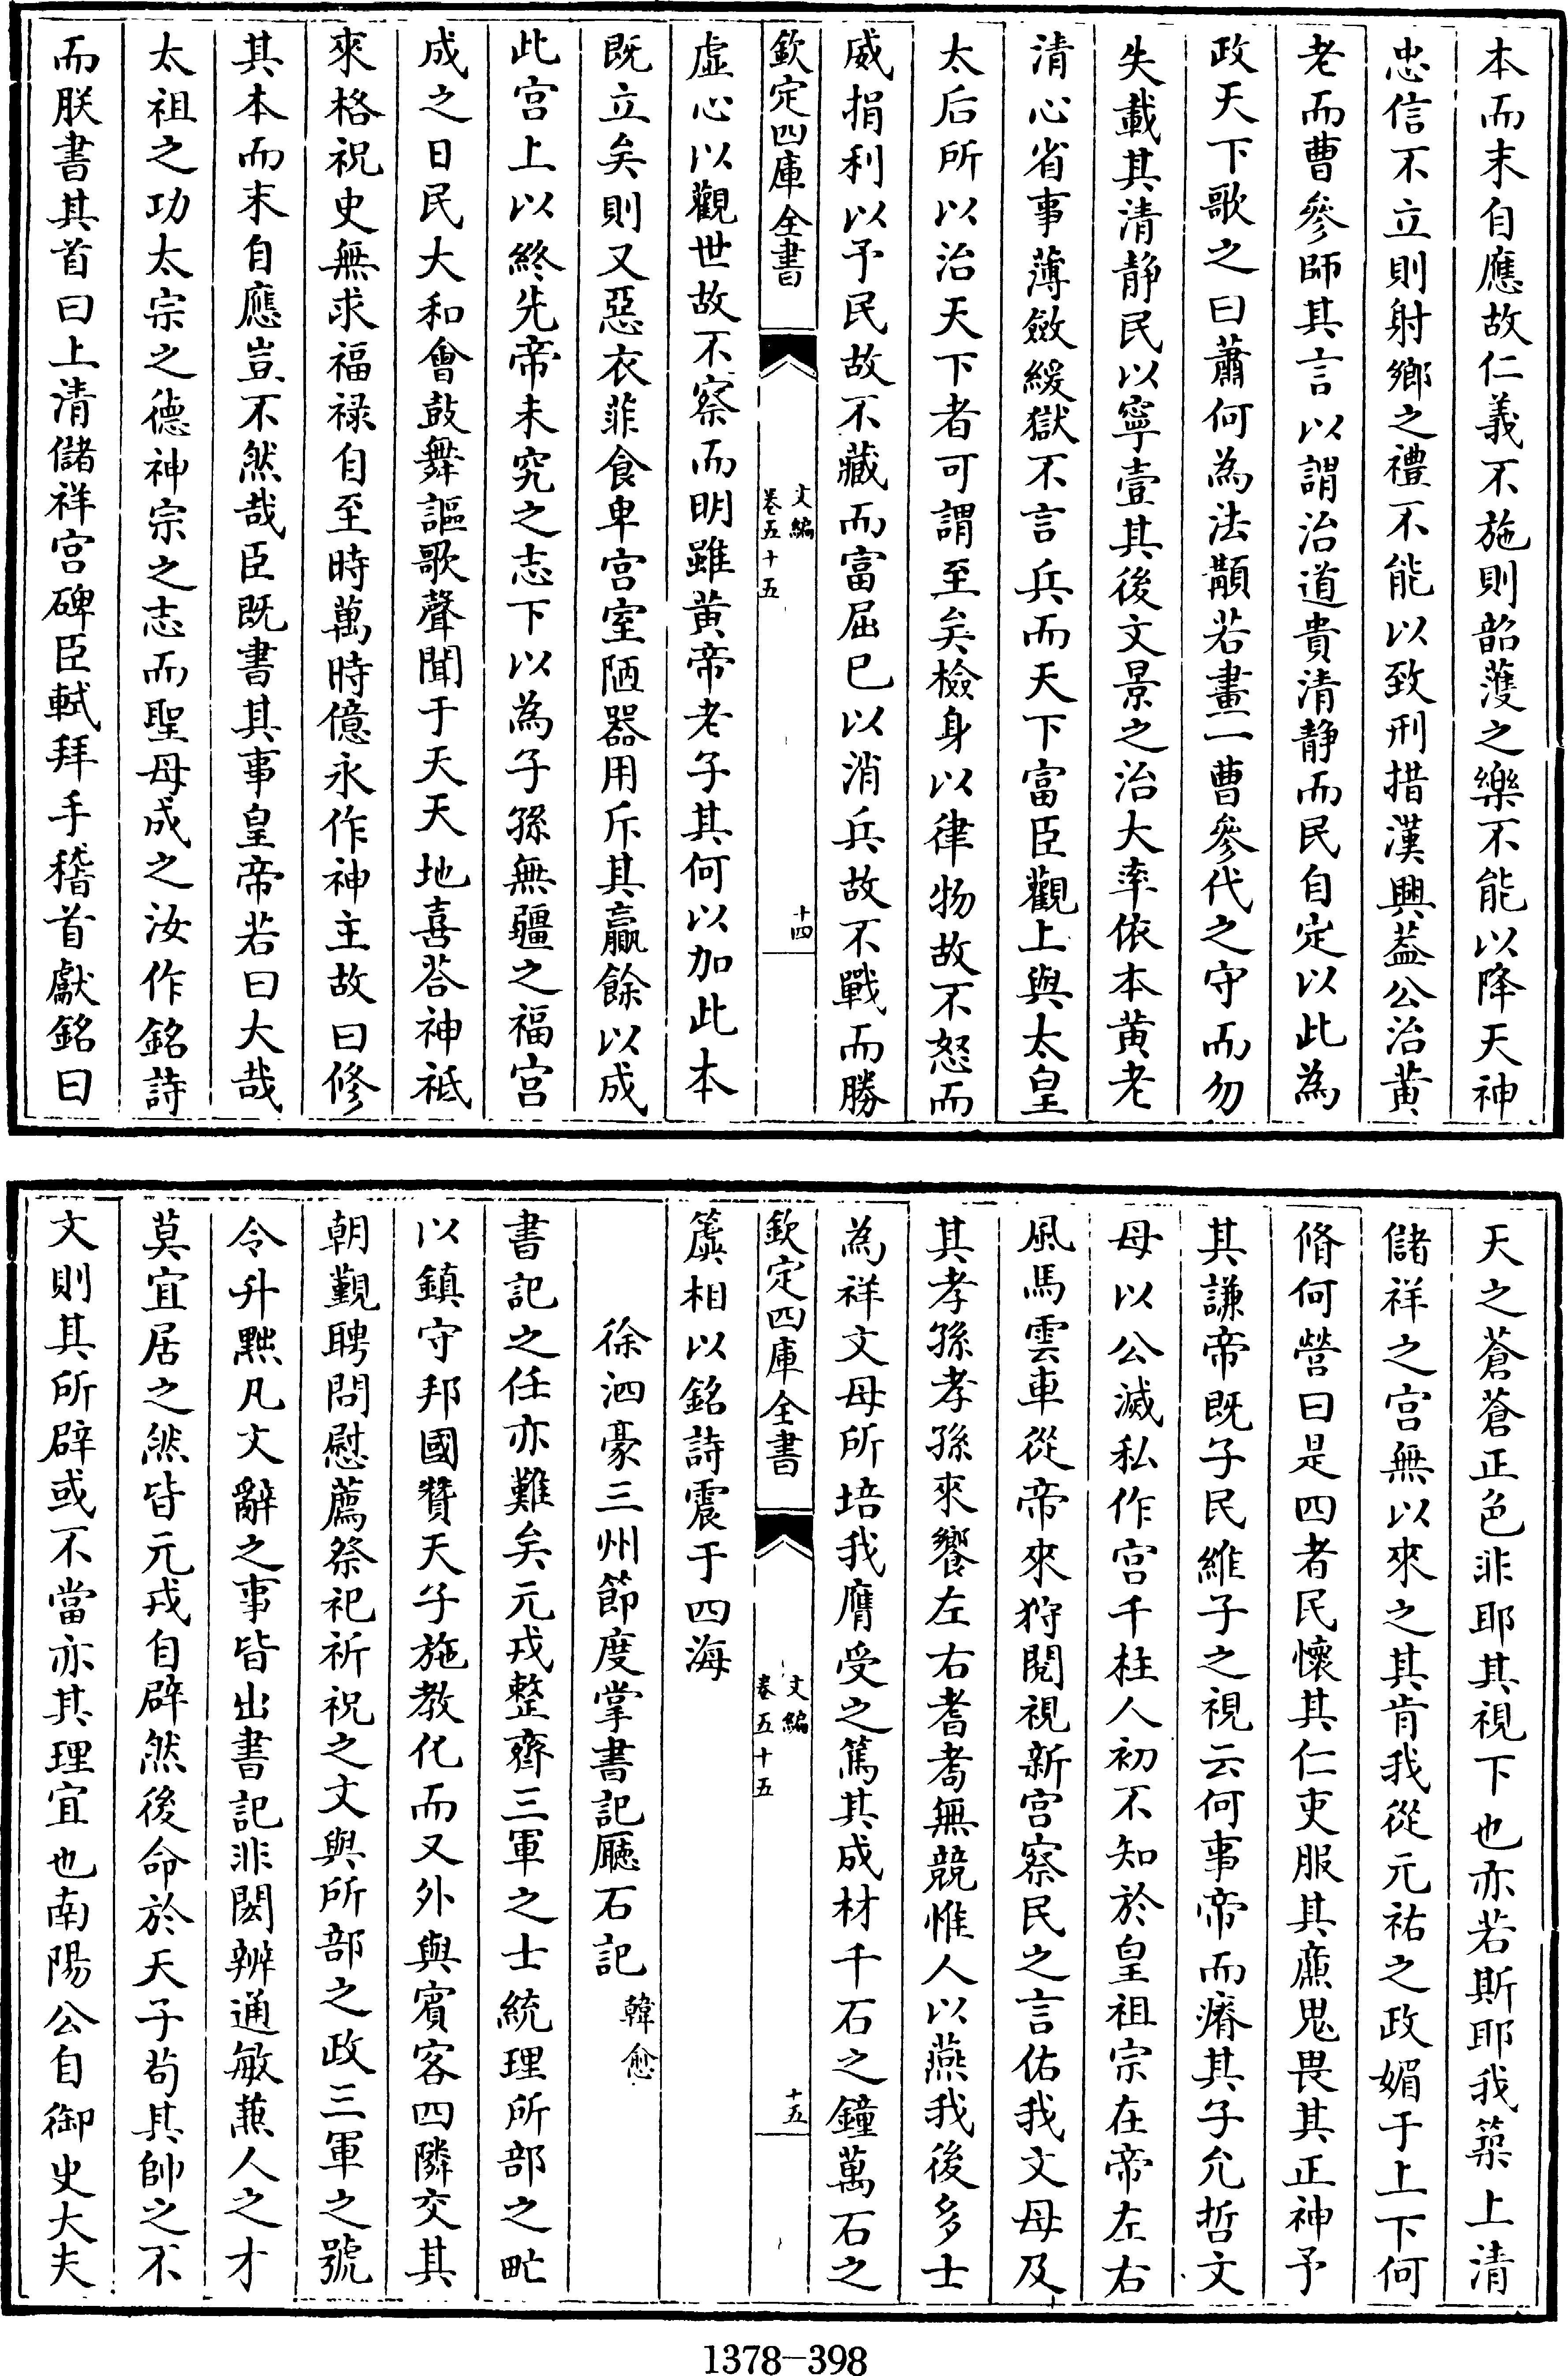 本而末自應故仁義不施則韶濩之樂不能以降天神
忠信不立則射鄉之禮不能以致刑措漢興葢公治黄
老而曹參師其言以謂治道貴清静而民自定以此為
政天下歌之曰蕭何為法顜若畫一曹參代之守而勿
失載其清静民以寧壹其後文景之治大率依本黄老
清心省事薄斂緩獄不言兵而天下富臣觀上與太皇
太后所以治天下者可謂至矣檢身以律物故不怒而
威捐利以予民故不藏而富屈已以消兵故不戰而勝
欽定四庫全書
文編
卷五十五
十四
虚心以觀世故不察而明雖黄帝老子其何以加此本
既立矣則又惡衣菲食卑宫室陋器用斥其贏餘以成
此宫上以終先帝未究之志下以為子孫無疆之福宫
成之日民大和會鼓舞謳歌聲聞于天天地喜荅神祗
來格祝史無求福禄自至時萬時億永作神主故曰修
其本而末自應豈不然哉臣既書其事皇帝若曰大哉
太祖之功太宗之德神宗之志而聖母成之汝作銘詩
而朕書其首曰上清儲祥宫碑臣軾拜手稽首獻銘曰
天之蒼蒼正色非耶其視下也亦若斯耶我築上清
儲祥之宫無以來之其肯我從元祐之政媚于上下何
脩何營曰是四者民懷其仁吏服其亷鬼畏其正神予
其謙帝既子民維子之視云何事帝而瘠其子允哲文
母以公滅私作宫千柱人初不知於皇祖宗在帝左右
風馬雲車從帝來狩閱視新宫察民之言佑我文母及
其孝孫孝孫來饗左右耆耈無競惟人以燕我後多士
為祥文母所培我膺受之篤其成材千石之鐘萬石之
欽定四庫全書
文編
卷五十五
十五
簴相以銘詩震于四海
徐泗豪三州節度掌書記廳石記 韓愈
書記之任亦難矣元戎整齊三軍之士統理所部之甿
以鎮守邦國贊天子施教化而又外與賓客四隣交其
朝覲聘問慰薦祭祀祈祝之文與所部之政三軍之號
令升黜凡文辭之事皆出書記非閎辨通敏兼人之才
莫宜居之然皆元戎自辟然後命於天子苟其帥之不
文則其所辟或不當亦其理宜也南陽公自御史大夫
1378-398